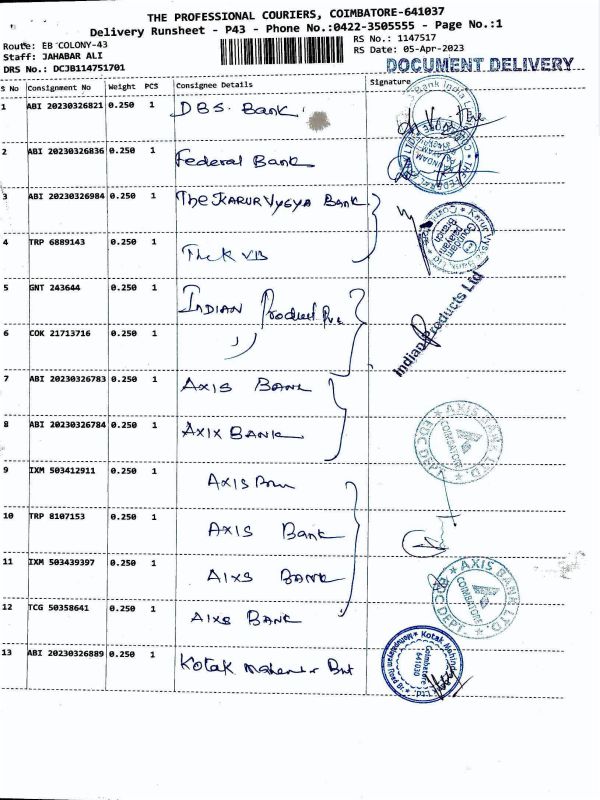 THE PROFESSIONAL COURIERS, COIMBATORE-641037
Delivery Runsheet - P43 - Phone No.:0422-3505555 - Page No.:1
Route: EB COLONY-43
RS No.: 1147517
Staff: JAHABAR ALI
RS Date: 05-Apr-2023
DRS No.: DCJB114751701
DOCUMENT DELIVERY
S No Consignment No Weight PCS Consignee Details Signature
1 ABI 20230326821 0.250 1 DBS. Bank
2 ABI 20230326836 0.250 1 Federal Bank
3 ABI 20230326984 0.250 1 The KARUR VYSYA BANK
4 TRP 6889143 0.250 1 The K VB
Karur Vysya Bank Ltd
5 GNT 243644 0.250 1 INDIAN Product
Indian Products Ltd
6 COK 21713716 0.250 1 ,,
7 ABI 20230326783 0.250 1 AXIS BANK
8 ABI 20230326784 0.250 1 AXIX BANK
AXIS BANK LTD
COIMBATORE
EDC DEPT.
9 IXM 503412911 0.250 1 AXIS
10 TRP 8107153 0.250 1 AXIS Bank
11 IXM 503439397 0.250 1 AIXS BANK
AXIS BANK LTD
COIMBATORE
EDC DEPT.
12 TCG 50358641 0.250 1 AIXS BANK
13 ABI 20230326889 0.250 1 Kotak
Kotak Mahindra
Coimbatore
641030